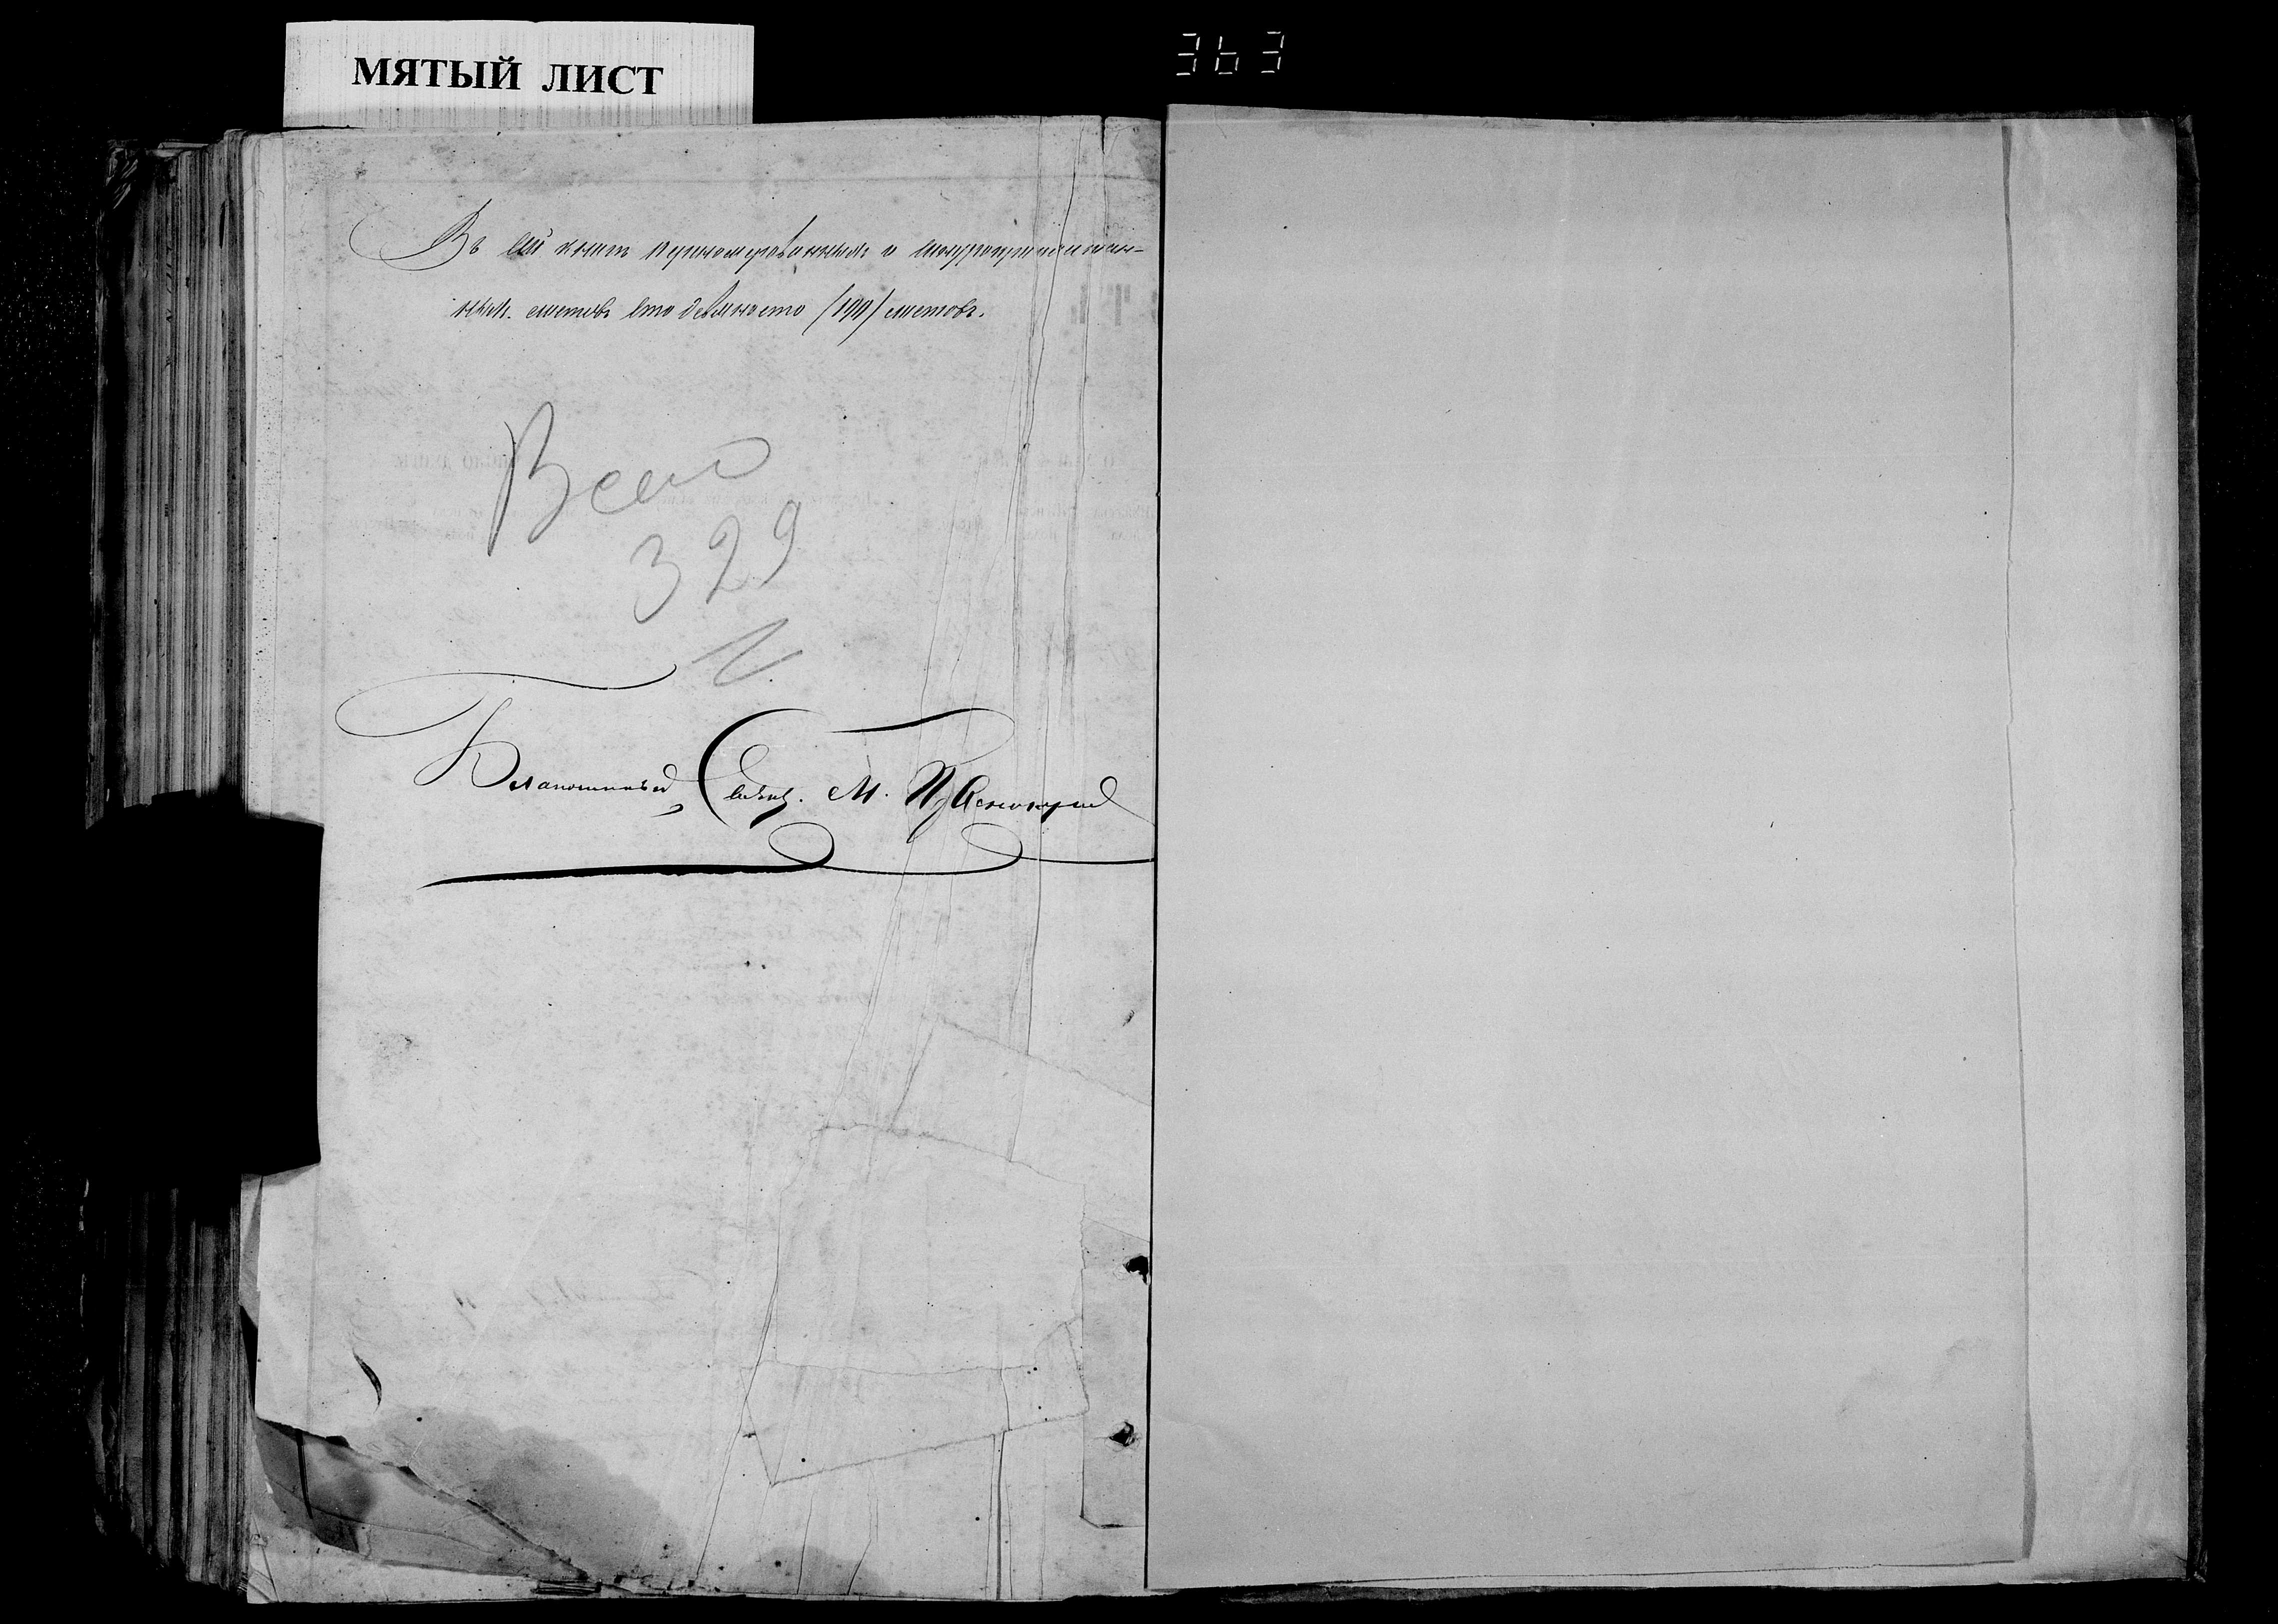 МЯТЫЙ ЛИСТ
363
Въ сей книгѣ пронумерованныхъ и шнуропрошнурован-
ныхъ листовъ сто девяносто /190/ листовъ.
Всего
329
Благочинный, Свящ. М.